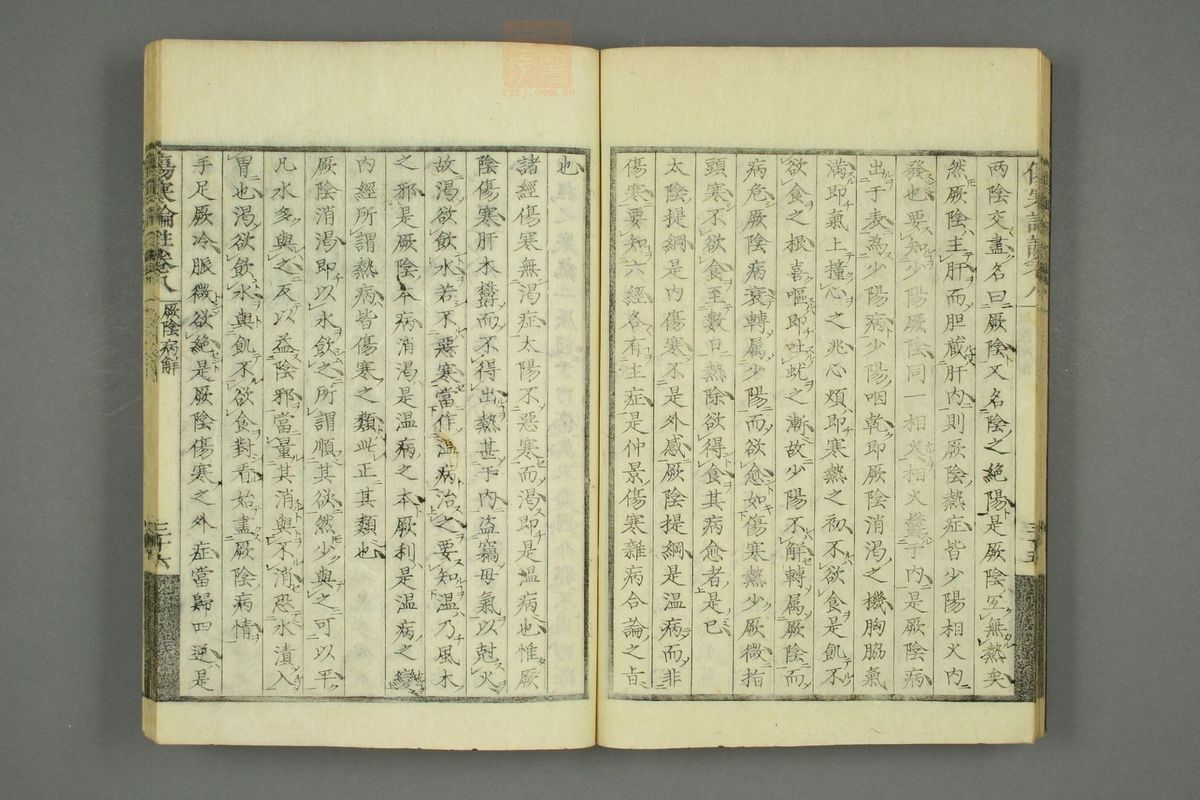 两陰交盡名曰厥陰又名陰之絶陽是厥陰宜無熱矣
然厥陰主肝而胆蔵肝内則厥陰熱症皆少陽相火内
發也要知少陽厥陰同一相火相火鬱于内是厥陰病
出于表為少陽病少陽咽乾即厥陰消渴之機胸脇氣
満即氣上撞心之兆心煩即寒熱之初不欲食是飢不
欲食之根喜嘔即吐蚘之漸故少陽不解轉属厥陰而
病危厥陰病衰轉属少陽而欲愈如傷寒熱少厥微指
頭寒不欲食至數日熱除欲得食其病愈者是已
太陰提綱是内傷寒不是外感厥陰提綱是温病而非
傷寒要知六經各有主症是仲景傷寒雜病合論之旨
也
諸經傷寒無渴症太陽不惡寒而渴即是温病也惟厥
陰傷寒肝木鬱而不得出熱甚于内盗竊母氣以尅火
故渴欲飲水若不惡寒當作温病治之要知温乃風木
之邪是厥陰本病消渴是温病之本厥利是温病之變
内經所謂熱病皆傷寒之類此正其類也
厥陰消渴即以水飲之所謂順其欲然少與之可以平
凡水多與之反以益陰邪當量其消與不消恐水漬入
胃也渴欲飲水與飢不欲食對看始盡厥陰病情
手足厥冷脈微欲絶是厥陰傷寒之外症當歸四逆是
傷寒論註卷八
厥陰病解
三十六
三十五
zysj.com.cn